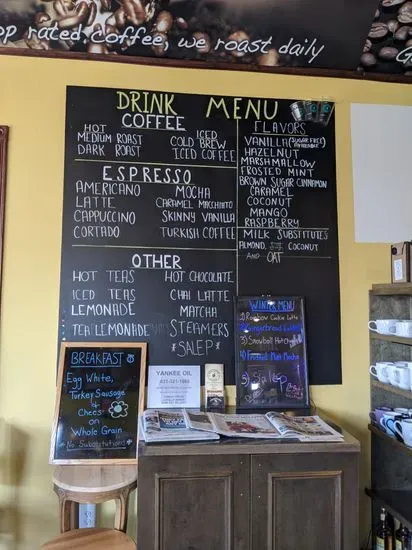 op rated coffee, we roast daily
DRINK MENU
COFFEE
HOT
MEDIUM ROAST
DARK ROAST
ICED
COLD BREW
ICED COFFEE
ESPRESSO
AMERICANO
LATTE
CAPPUCCINO
CORTADO
MOCHA
CARAMEL MACCHIATO
SKINNY VANILLA
TURKISH COFFEE
OTHER
HOT TEAS
ICED TEAS
LEMONADE
TEA LEMONADE
HOT CHOCOLATE
CHAI LATTE
MATCHA
STEAMERS
*SALEP*
FLAVORS
VANILLA (SUGAR FREE)
HAZELNUT
MARSHMALLOW
FROSTED MINT
BROWN SUGAR CINNAMON
CARAMEL
COCONUT
MANGO
RASPBERRY
MILK SUBSTITUTES
ALMOND, COCONUT
AND OAT
WINTER MENU
1) Rainbow Cookie Latte
2) Gingerbread Latte
3) Snowball Hot
4) Frosted Mint Mocha
5) Salep
BREAKFAST
Egg White,
Turkey Sausage
&
Cheese
on
Whole Grain
*No Substitutions*
YANKEE OIL
631-321-1665